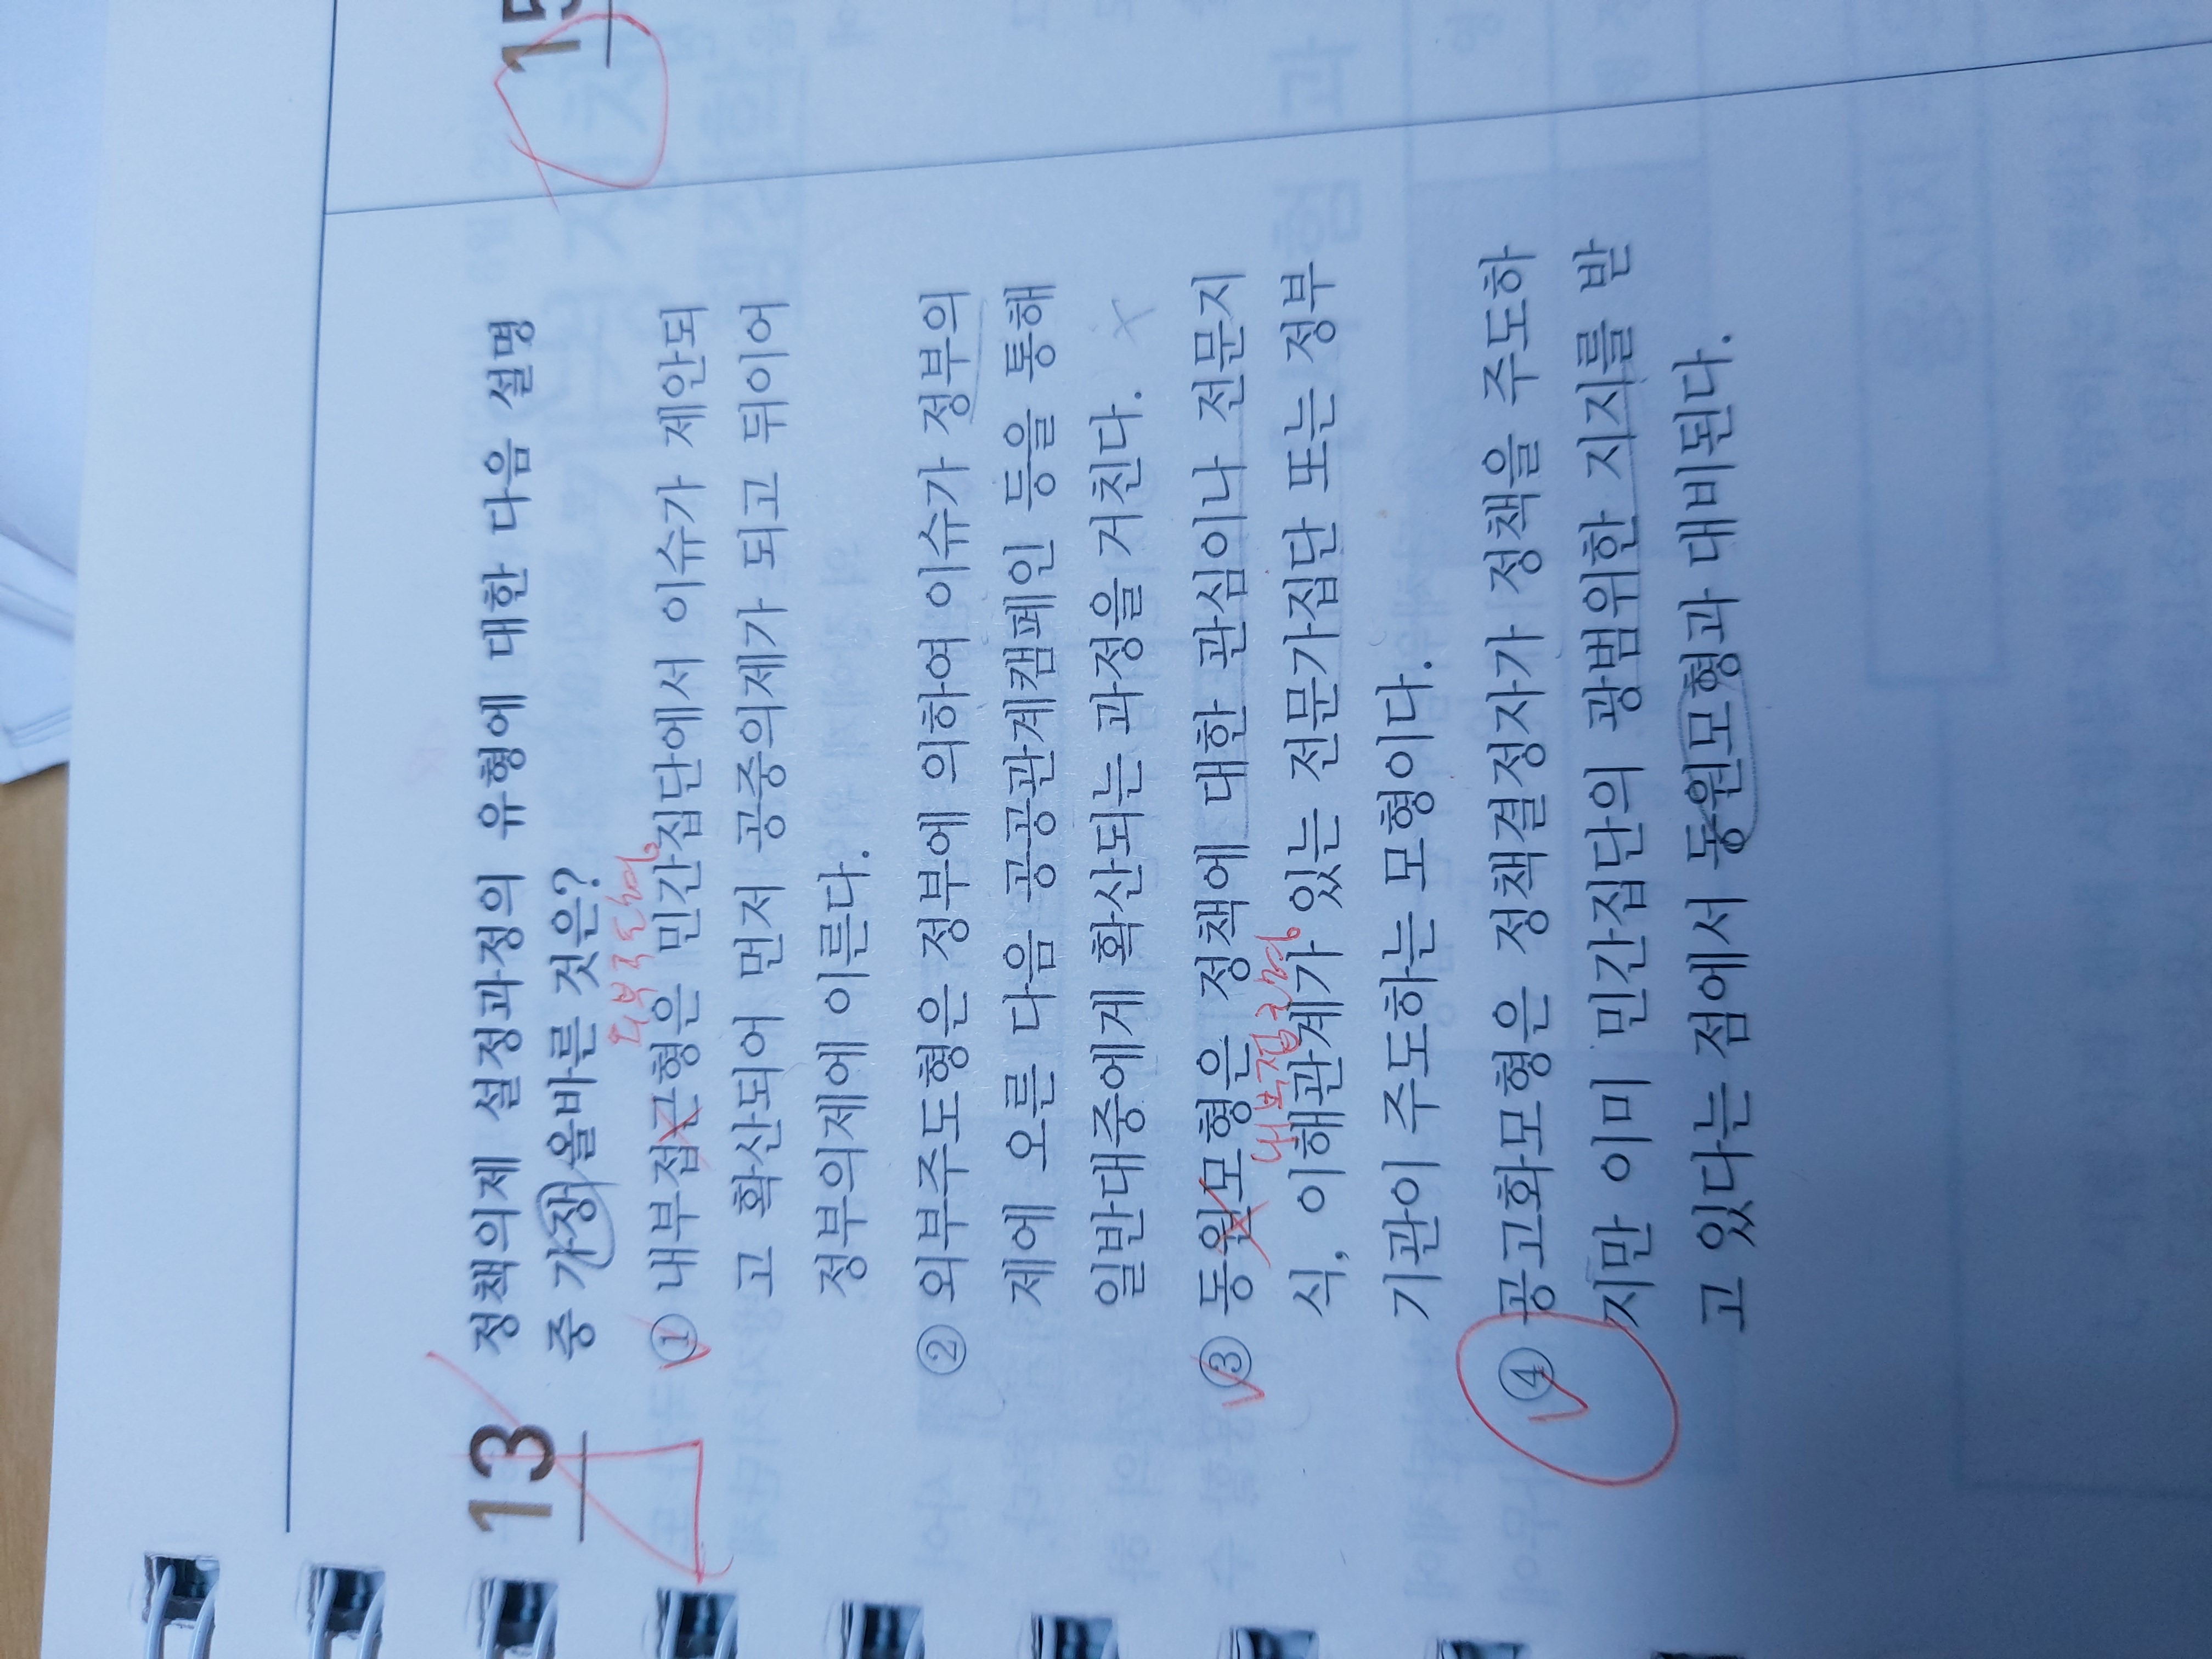 13
정책의제 설정과정의 유형에 대한 다음 설명
중 가장 올바른 것은?
외부주도형
① 내부접근형은 민간집단에서 이슈가 제안되
고 확산되어 먼저 공중의제가 되고 뒤이어
정부의제에 이른다.
② 외부주도형은 정부에 의하여 이슈가 정부의
제에 오른 다음 공공관계캠페인 등을 통해
일반대중에게 확산되는 과정을 거친다.
③ 동원모형은 정책에 대한 관심이나 전문지
내부접근형
식, 이해관계가 있는 전문가집단 또는 정부
기관이 주도하는 모형이다.
④ 공고화모형은 정책결정자가 정책을 주도하
지만 이미 민간집단의 광범위한 지지를 받
고 있다는 점에서 동원모형과 대비된다.
15